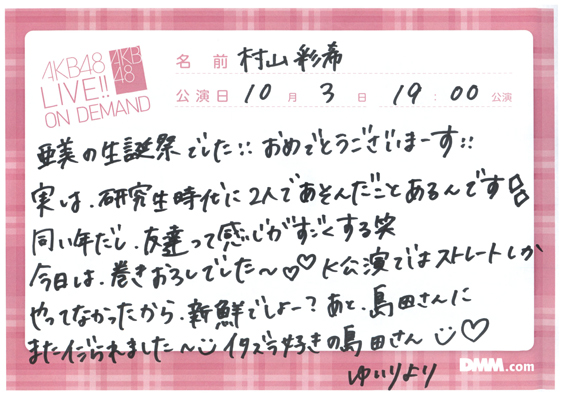 AKB48
LIVE!!
ON DEMAND
AKB
48
名前 村山彩希
公演日 10月3日 19:00公演
亜美の生誕祭でした!! おめでとうございまーす!!
実は、研究生時代に2人であそんだことあるんです
同い年だし、友達って感じがすごくする笑
今日は、巻きおろしでした〜♡♡ K公演ではストレートしか
やってなかったから、新鮮でしょー?あと、島田さんに
またイジられました〜 イタズラ好きの島田さん ♡
ゆいりより
DMM.com